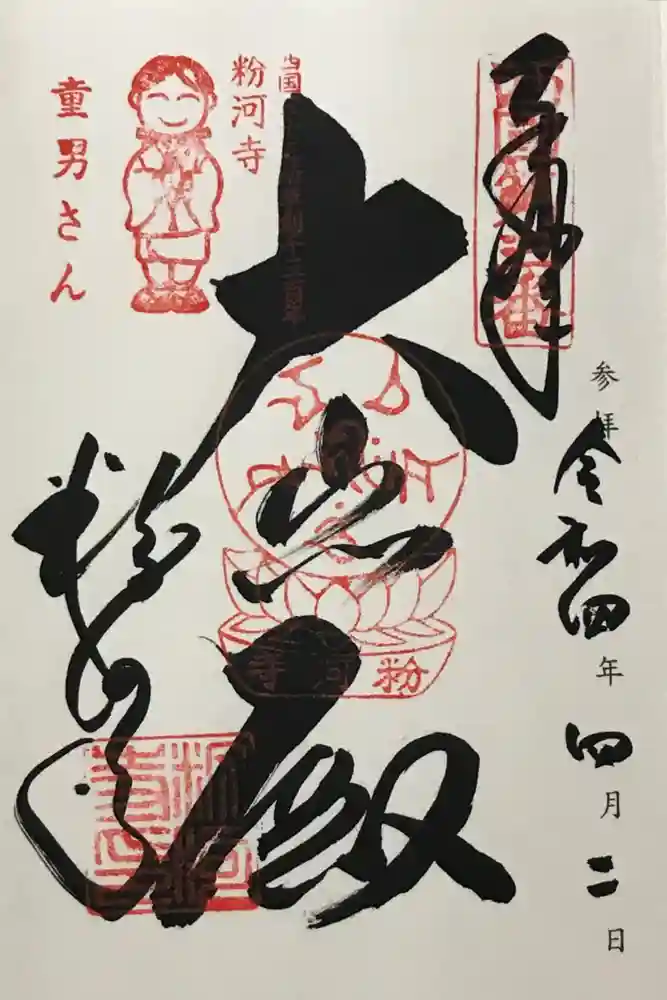 奉拝
西国第三番
参拝
令和四年四月二日
大悲殿
粉河寺
粉河寺
粉河寺
童男さん
粉河寺